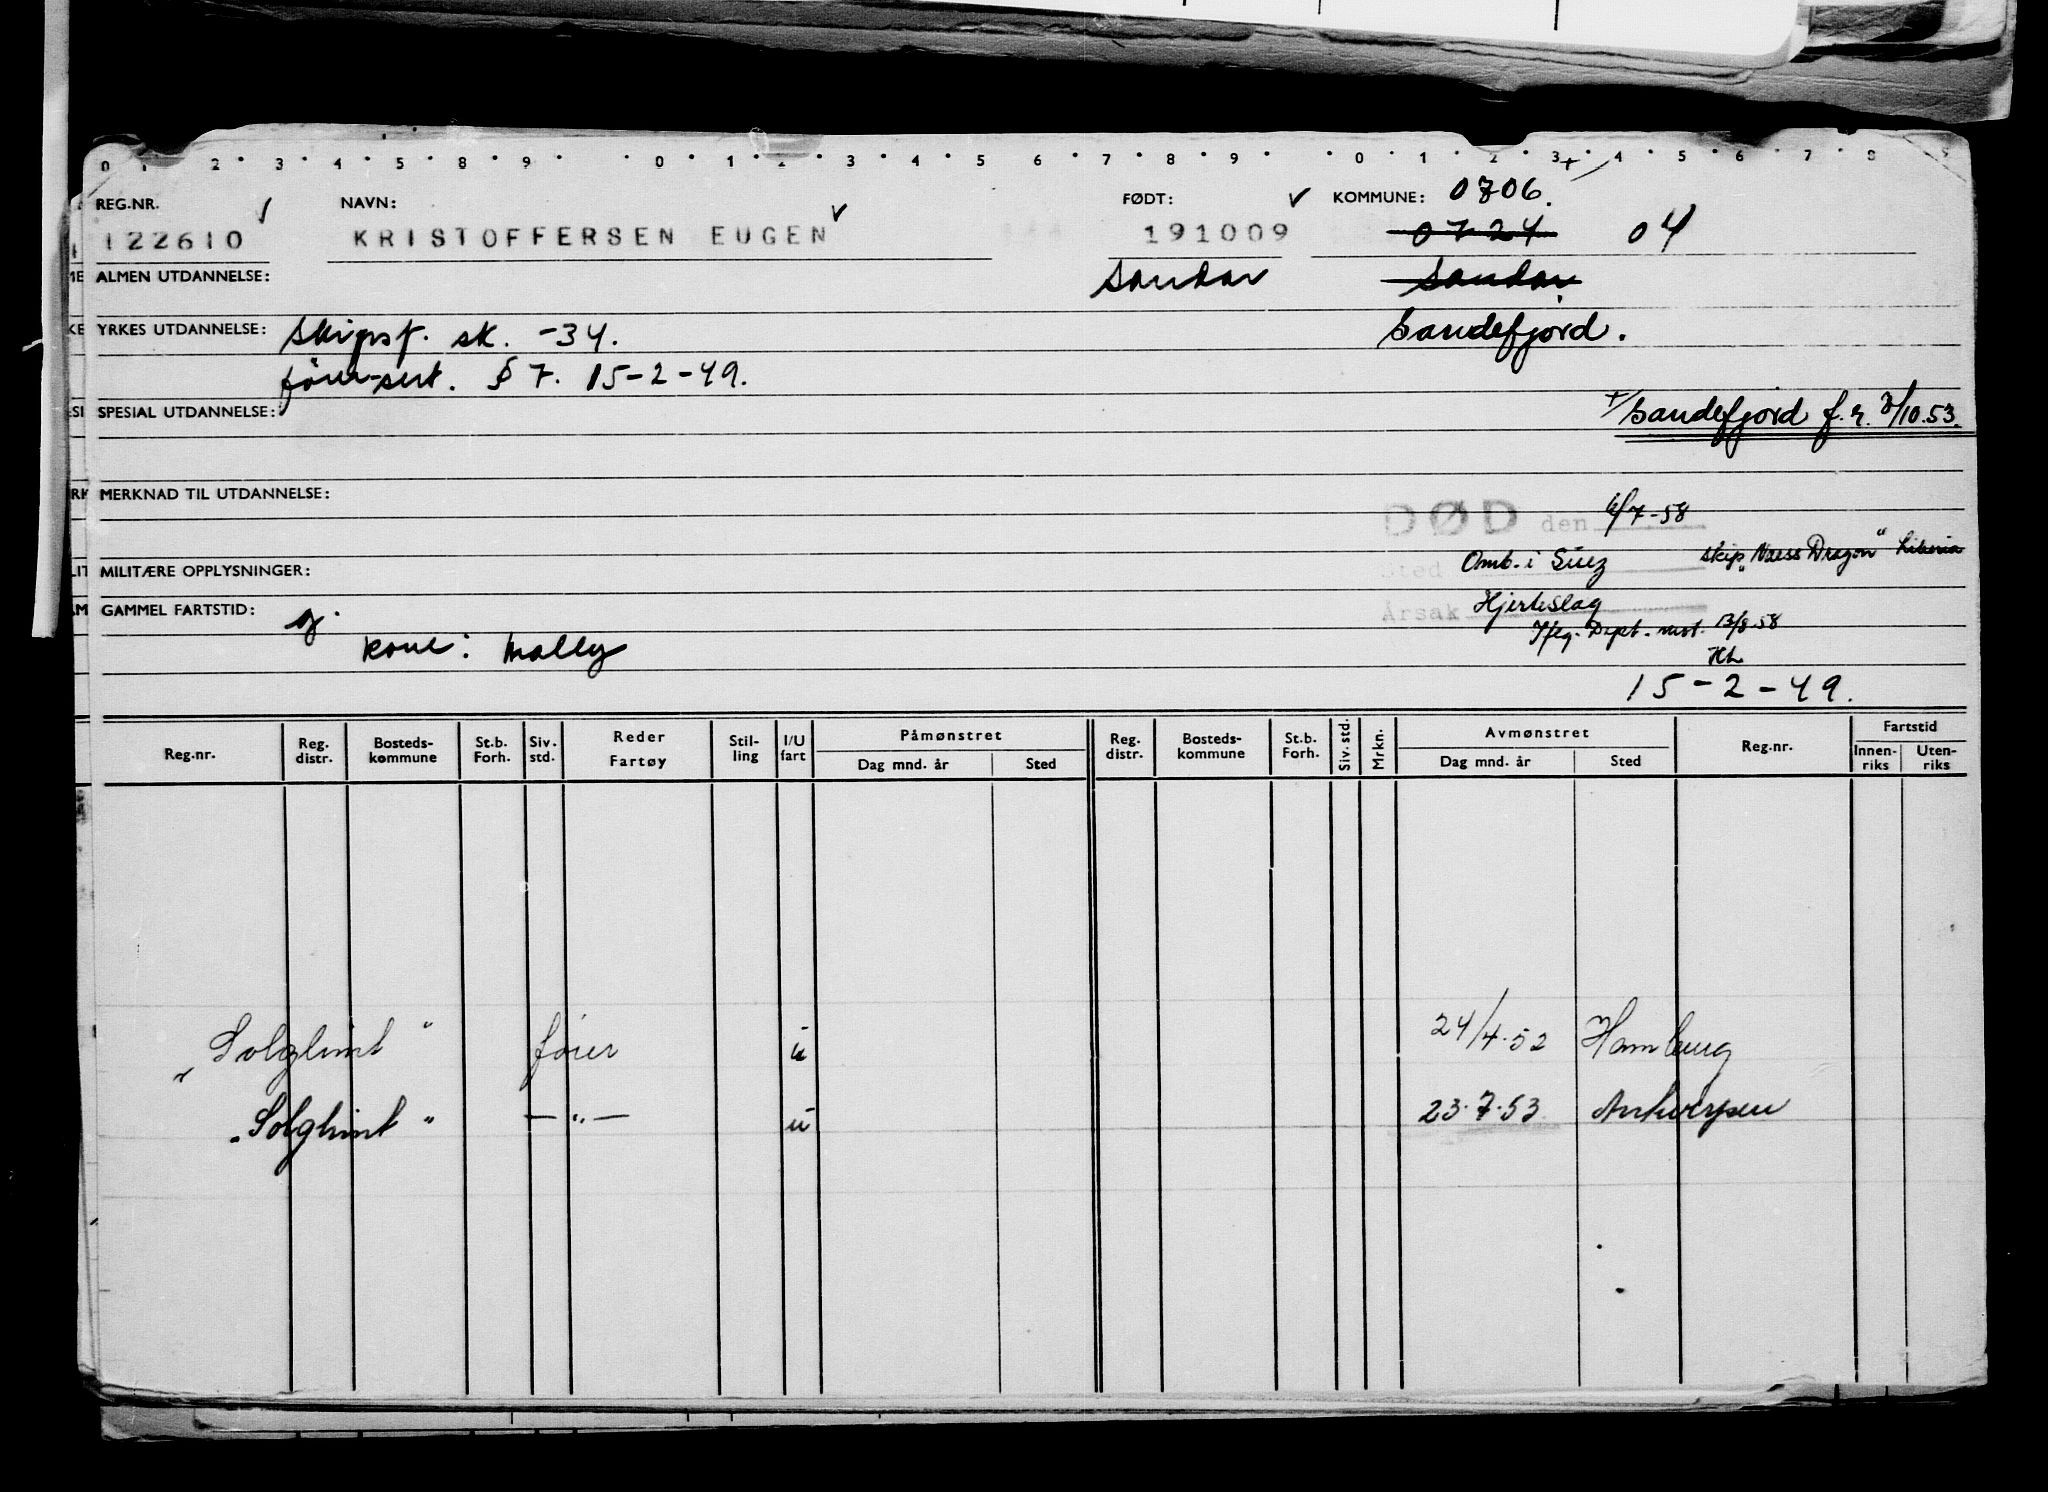 0 1 2 3 4 5 8 9 0 1 2 3 4 5 6 7 8 9 0 1 2 3 4 5 6 7 8 9
REG.NR. NAVN: FØDT: KOMMUNE: 0706.
122610 KRISTOFFERSEN EUGEN 191009 0724 04
ALMEN UTDANNELSE: Sandar Sandar
YRKES UTDANNELSE: Skipsf. sk. -34. Sandefjord.
fører-sert. § 7. 15-2-49.
SPESIAL UTDANNELSE: +/Sandefjord f.r. 3/10.53.
MERKNAD TIL UTDANNELSE:
DØD den 6/7-58
Sted Omb. i Suez skip „Næss Dragon" Liberia
MILITÆRE OPPLYSNINGER:
Årsak Hjerteslag
GAMMEL FARTSTID: ej.
Iføg. Dept. 13/8-58
kone: Molly
15-2-49.
Reg.nr. Reg. distr. Bosteds- kommune St.b. Forh. Siv. std. Reder Fartøy Stil- ling I/U fart Påmønstret Dag mnd. år Sted Reg. distr. Bosteds- kommune St.b. Forh. Siv. std. Mrkn. Avmønstret Dag mnd. år Sted Reg.nr. Fartstid Innen- riks Uten- riks
„Solglimt" fører u 24/4.52 Hamburg
„Solglimt" —"— u 23.7.53 Antwerpen